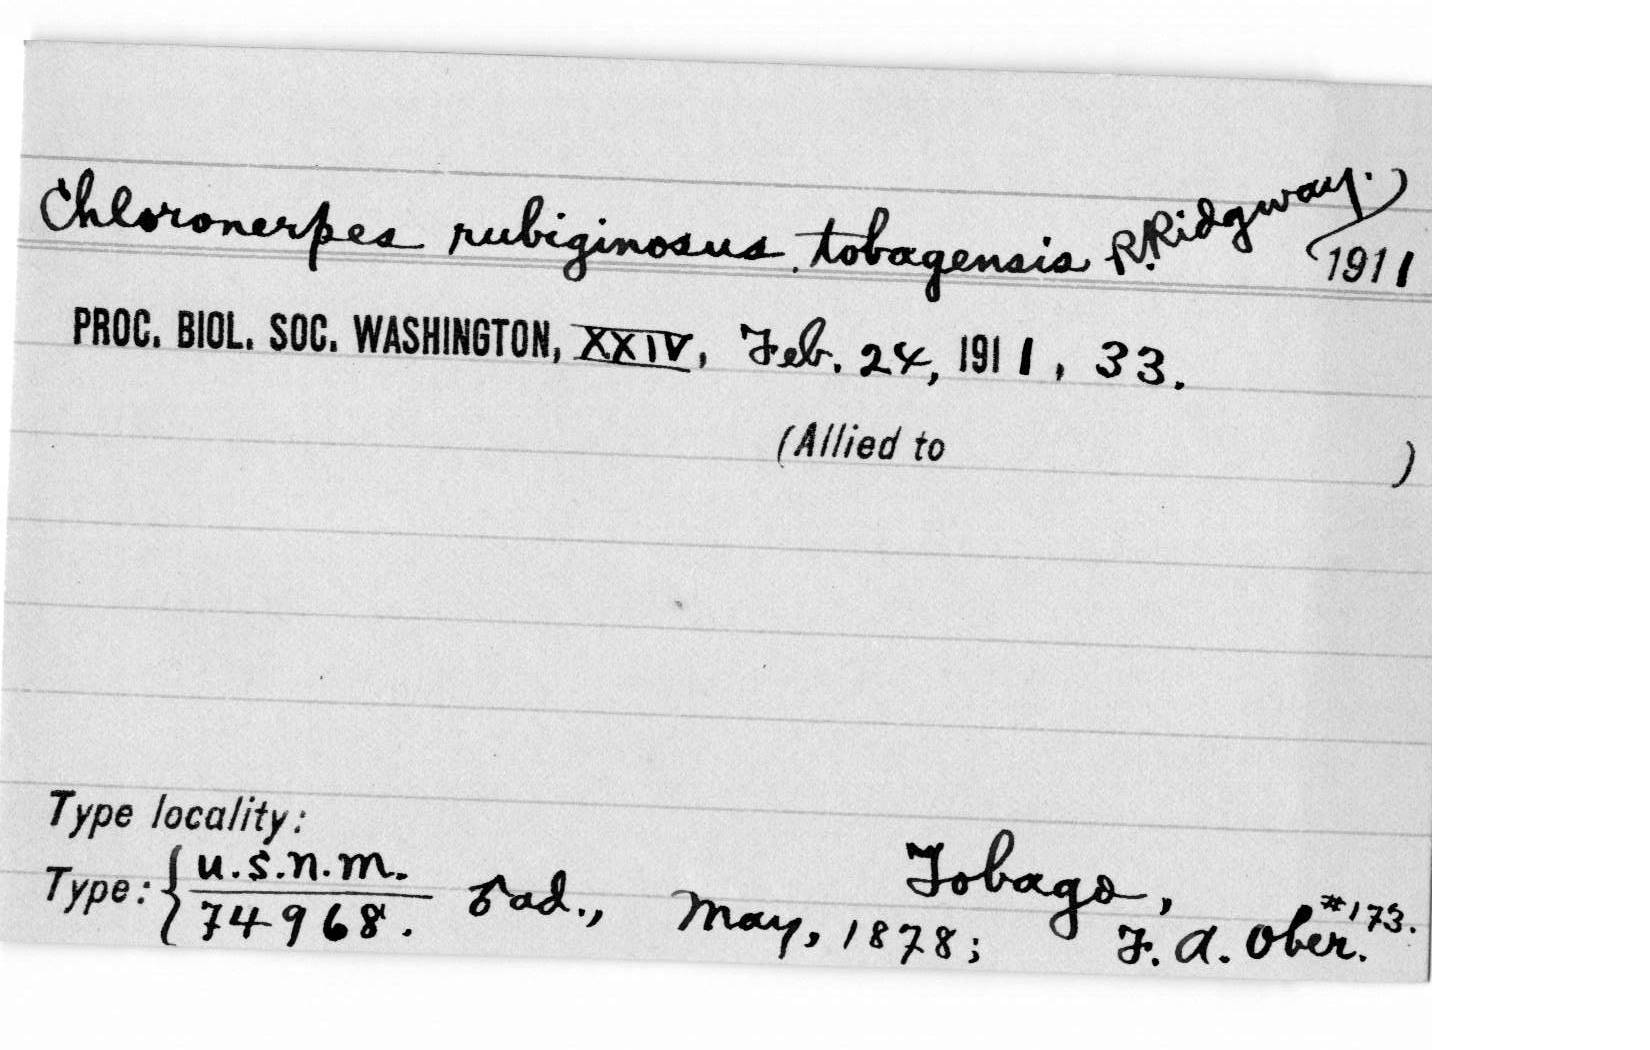 Chloronerpes rubiginosus tobagensis R. Ridgway.
1911
PROC. BIOL. SOC. WASHINGTON, XXIV, Feb. 24, 1911, 33.
(Allied to )
Type locality:
Tobago,
Type: { U.S.N.M. 74968. ♂ ad., May, 1878; F. A. Ober. #173.